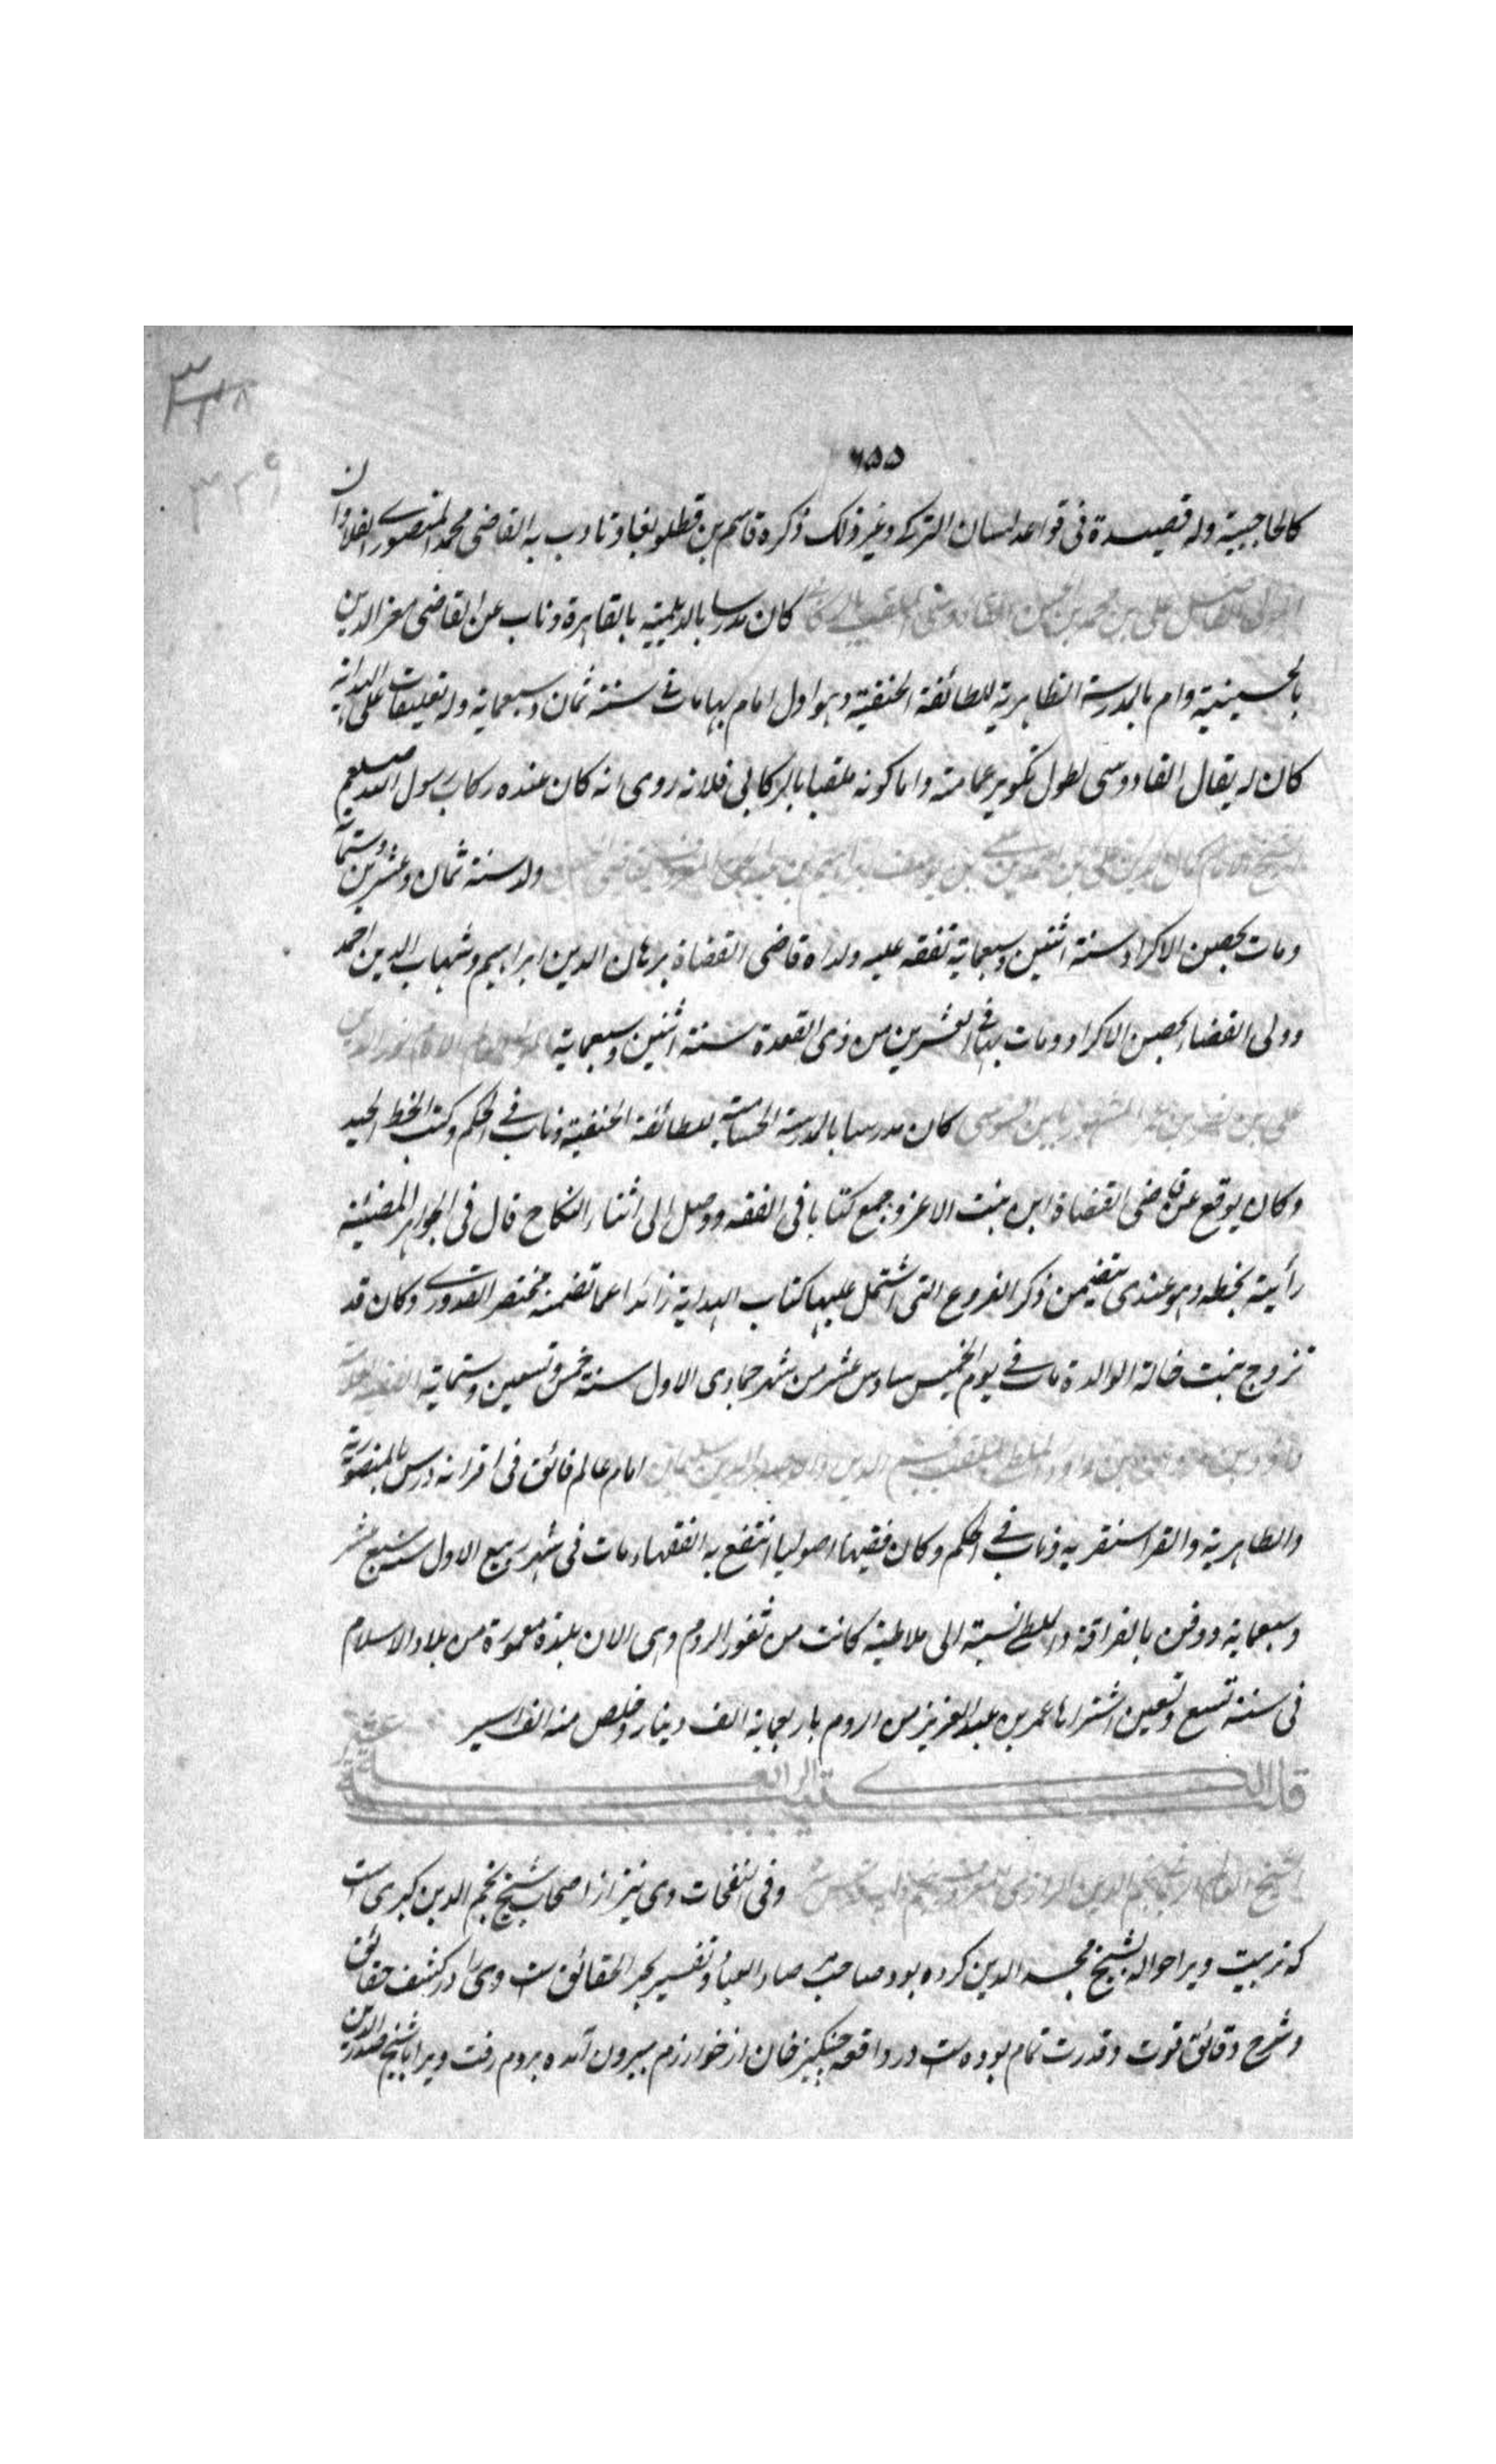 ٦٥٥
كالحاجبية وله قصيدة فى قواعد لسان الترك وغير ذلك ذكره قاسم بن قطلوبغا وتادب به القاضى محمد المنصورى القلاوان
على بن محمد بن الحسن القادوسى الملقب بالركابى كان مدرسا بالديلمية بالقاهرة وناب عن القاضى معز الدين
بالحسينية وام بالمدرسة الظاهرية للطائفة الحنفية وهو اول امام بها مات فى سنة ثمان وسبعماية وله تعليقات على الهداية
كان له يقال القادوسى لطول تكوير عمامته واما كونه ملقبا بالركابى فلانه روى انه كان عنده ركاب رسول الله صلعم
ولد سنة ثمان وعشرين وستماية
ومات بحصن الاكراد سنة اثنين وسبعماية تفقه عليه ولداه قاضى القضاة برهان الدين ابراهيم وشهاب الدين احمد
وولى القضاء بحصن الاكراد ومات بها فى العشرين من ذى القعدة سنة اثنين وسبعماية الامام نور الدين
على بن نصر بن عمر المشهور بابن السوسى كان مدرسا بالمدرسة الحسامية للطائفة الحنفية وناب فى الحكم وكتب الخط الجيد
وكان يوقع عن قاضى القضاة ابن بنت الاعز وجمع كتابا فى الفقه ووصل الى اثناء النكاح قال فى الجواهر المضيئة
رأيته بخطه وهو عندى يتضمن ذكر الفروع التى اشتمل عليها كتاب الهداية زائدا عما تضمنه مختصر القدورى وكان قد
تزوج بنت خالة الوالدة مات فى يوم الخميس سادس عشر من شهر جمادى الاول سنة خمس وتسعين وستماية
داود بن بن داود الملطى الملقب نجم الدين امام عالم فائق فى اقرانه درس بالمنصورية
والظاهرية والقراسنقرية وناب فى الحكم وكان فقيها اصوليا انتفع به الفقهاء مات فى شهر ربيع الاول سنة سبع عشر
وسبعماية ودفن بالقرافة والملطى نسبة الى ملاطية كانت من ثغور الروم وهى الان بلدة معمورة من بلاد الاسلام
فى سنة تسع وتسعين اشتراها عمر بن عبد العزيز من الروم باربعماية الف دينار وخلص منه الف اسير
قلب الكتيبة الرابعة عشر
الشيخ العالم نجم الدين الرازى المعروف بنجم دايه قدس سره وفى النفحات وى نيز از اصحاب شيخ نجم الدين كبرى است
كه تربيت ويرا حواله بشيخ مجد الدين كرده بود صاحب مرصاد العباد وتفسير بحر الحقائق است وى را در كشف حقائق
وشرح دقائق قوت وقدرت تمام بوده است در واقعه چنكيز خان از خوارزم بيرون آمده بروم رفت ويرا با شيخ صدر الدين